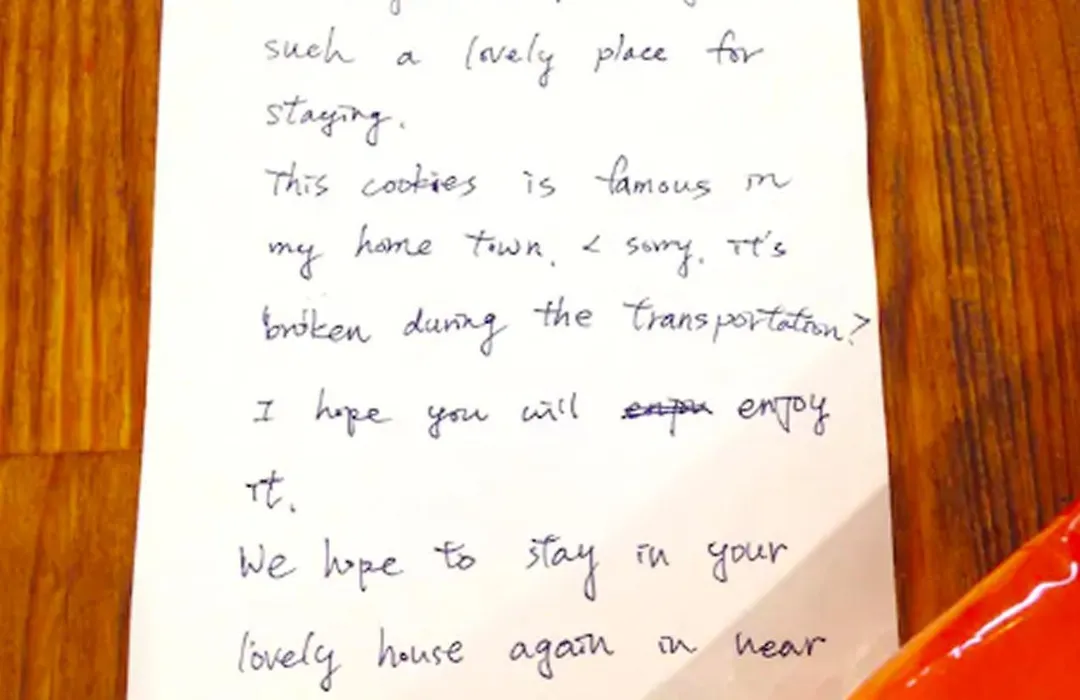 such a lovely place for
staying.
This cookies is famous in
my home town. < sorry. It's
broken during the transportation.>
I hope you will enjoy
it.
We hope to stay in your
lovely house again in near